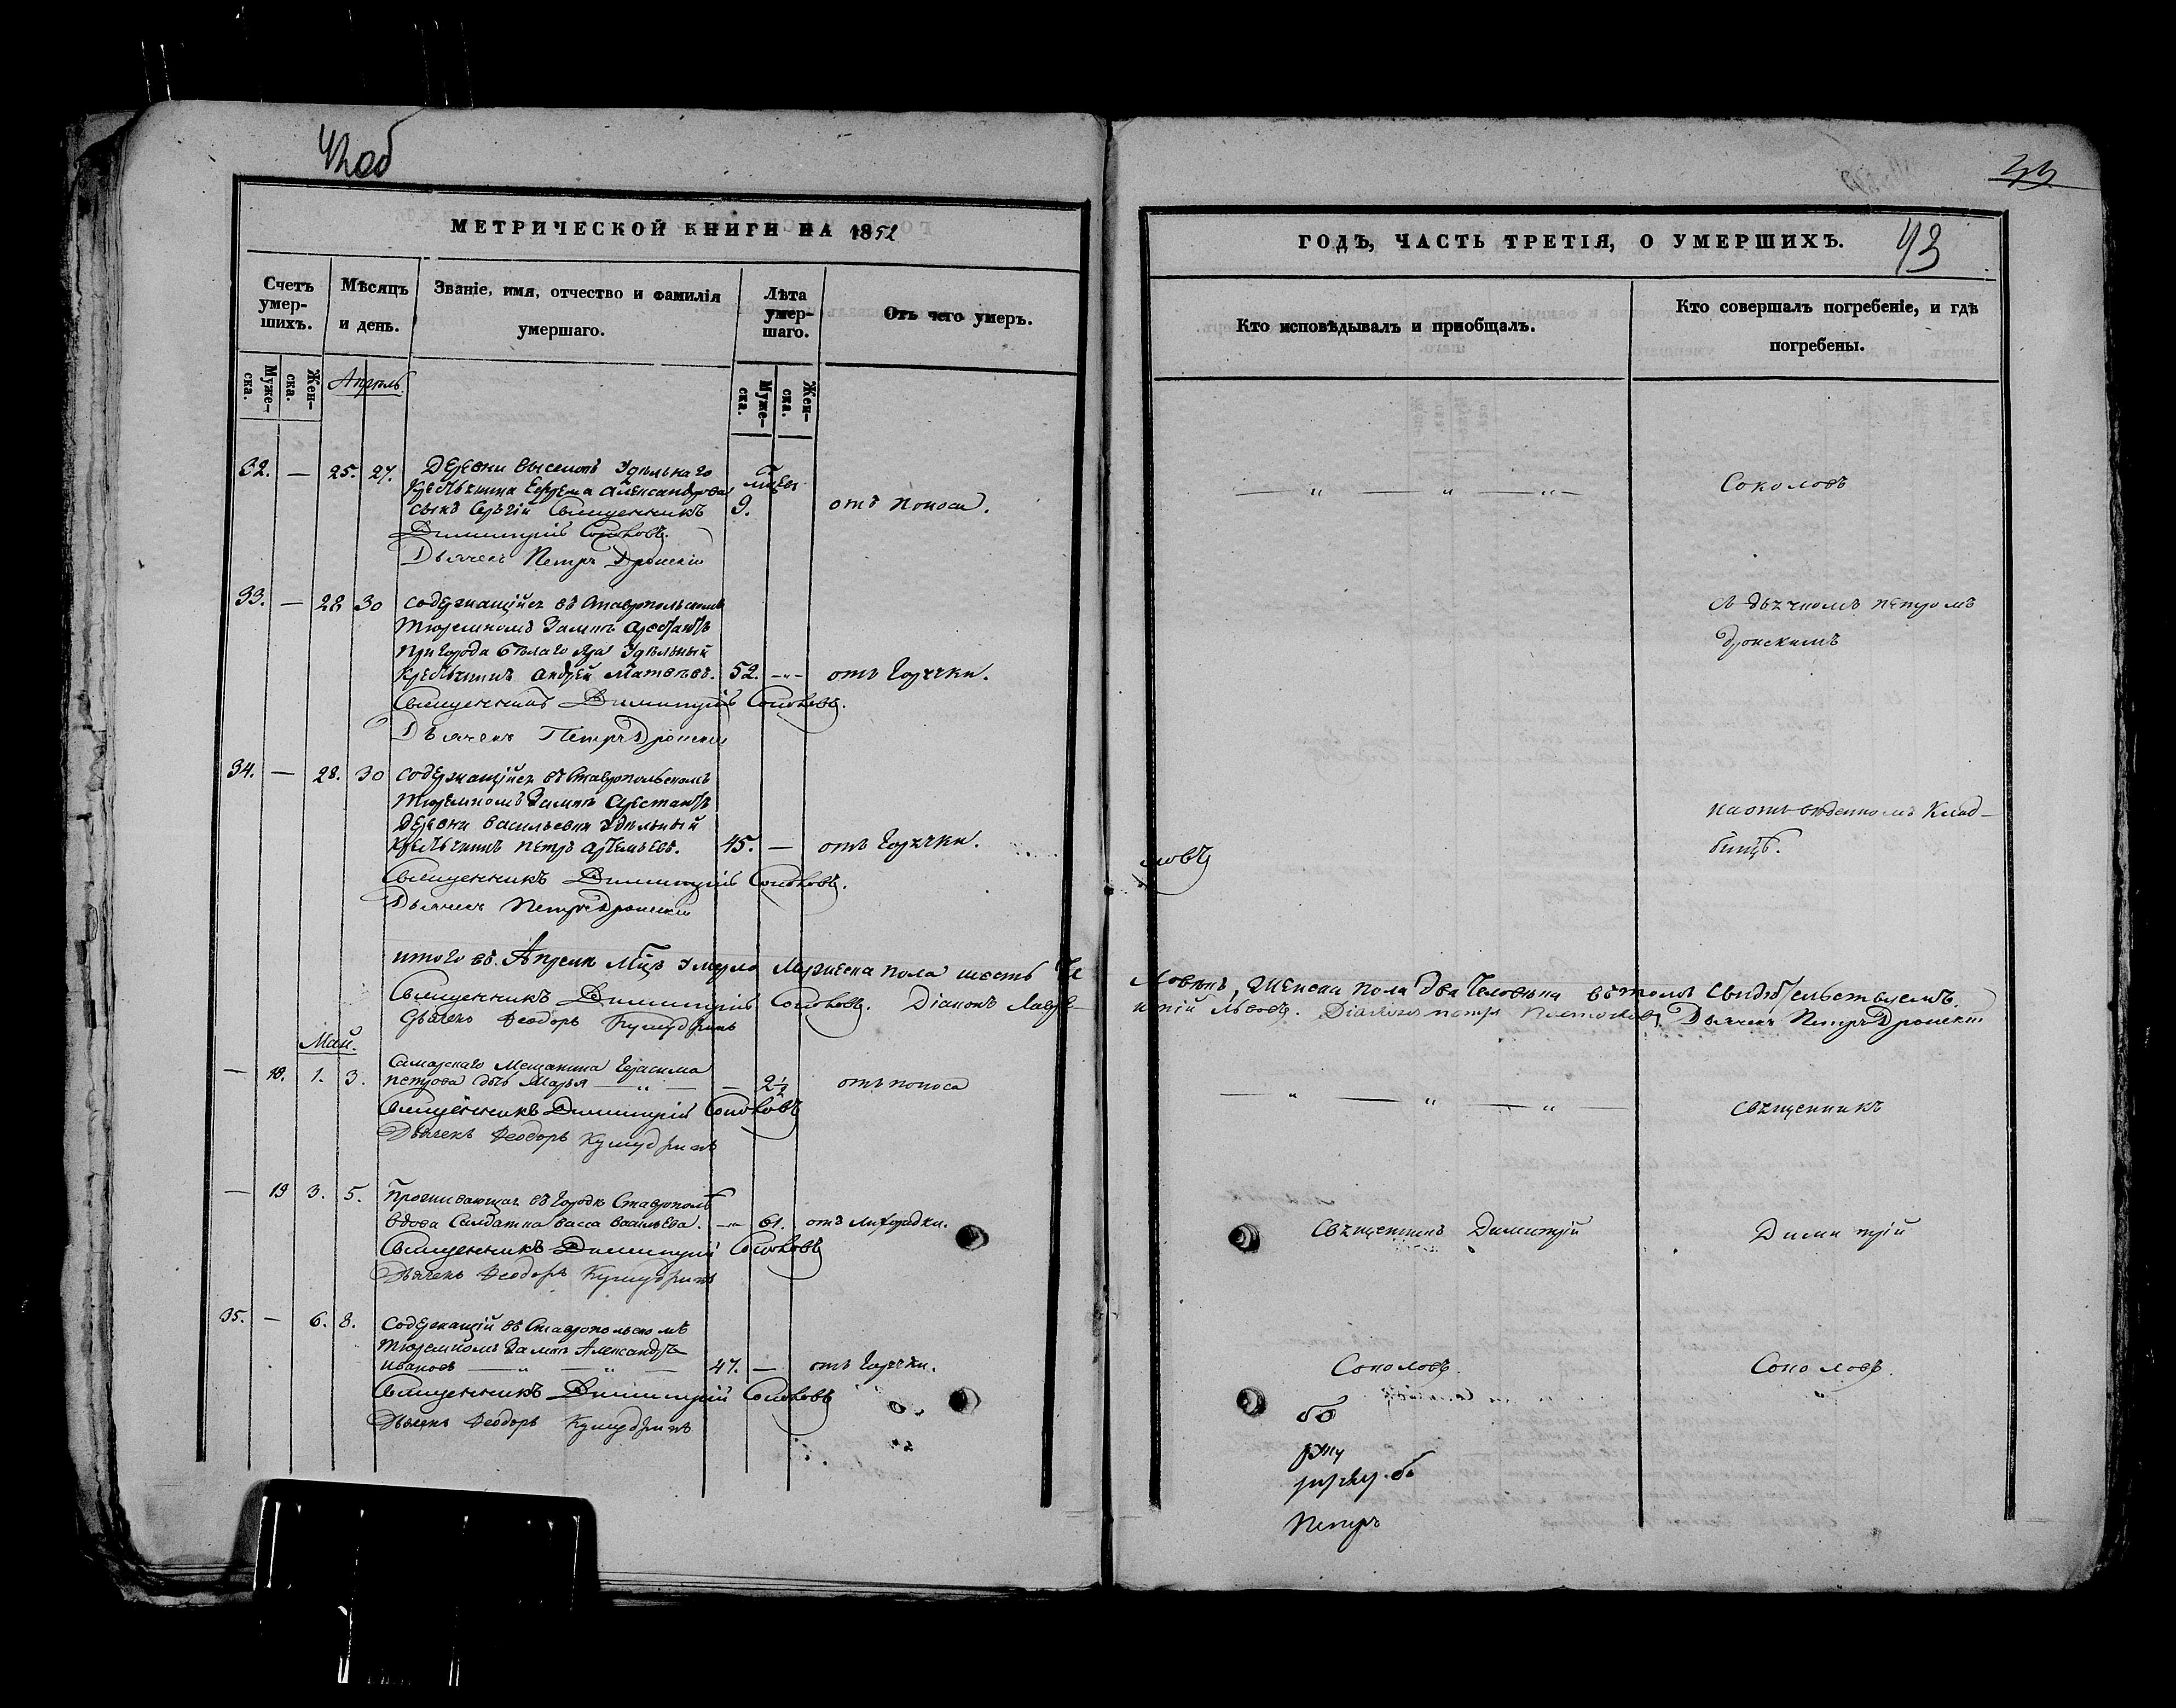 42об
МЕТРИЧЕСКОЙ КНИГИ НА 1852
Счетъ умер-шихъ.
Мѣсяцъ и день.
Званіе, имя, отчество и фамилія умершаго.
Лѣта умер-шаго.
Отъ чего умеръ.
Муже-ска.
Жен-ска.
Муже-ска.
Жен-ска.
Апрель
32. — 25. 27. Деревни Выселокъ Удѣльнаго
Крестьянина Ефрема Александрова
сынъ Сергій Священникъ 9. отъ поноса.
Димитрій Соколовъ.
Дьячекъ Петръ Дронскій
33. — 28 30 Содержащійся въ Ставропольскомъ
Тюремномъ Замкѣ Арестантъ
Пригорода Бѣлаго Яра Удѣльный
Крестьянинъ Андрей Матвѣевъ. 52. —„— отъ Горячки.
Священникъ Димитрій Соколовъ.
Дьячекъ Петръ Дронскій
34. — 28. 30 Содержащійся въ Ставропольскомъ
Тюремномъ Замкѣ Арестантъ
Деревни Васильевки Удѣльный
Крестьянинъ Петръ Артемьевъ. 45. — отъ Горячки.
Священникъ Димитрій Соколовъ.
Дьячекъ Петръ Дронскій
итого въ Апрели Мцѣ умерло Мужеска пола шесть Че
Священникъ Димитрій Соколовъ. Діаконъ Лавре-
Дьячекъ Феодоръ
Май.
— 18. 1. 3. Самарскаго Мещанина Герасима
Петрова дчь Марья —„— — 2½ отъ поноса
Священникъ Димитрій Соколовъ
Дьячекъ Феодоръ
— 19 3. 5. Проживающая въ Городѣ Ставрополѣ
вдова Солдатка Васса Васильева. —„— 61. отъ Лихорадки.
Священникъ Димитрій Соколовъ
Дьячекъ Феодоръ
35. — 6. 8. Содержащій въ Ставропольскомъ
Тюремномъ Замкѣ Александръ
Ивановъ —„— —„— 47. — отъ Горячки.
Священникъ Димитрій Соколовъ
Дьячекъ Феодоръ
43
ГОДЪ, ЧАСТЬ ТРЕТІЯ, О УМЕРШИХЪ.
Кто исповѣдывалъ и пріобщалъ.
Кто совершалъ погребеніе, и гдѣ погребены.
—„— —„— —„— Соколовъ
съ дьячкомъ Петромъ
Дронскимъ
на отведенномъ Клад-
бищѣ.
ловъ
ловѣкъ, Женска пола два Человѣка въ томъ свидѣтельствуемъ.
нтій Львовъ. Діаконъ Петръ Дьячекъ Петръ Дронскій
—„— —„— —„— Священникъ
Священникъ Димитрій Димитрій
Соколовъ. Соколовъ.
Петръ